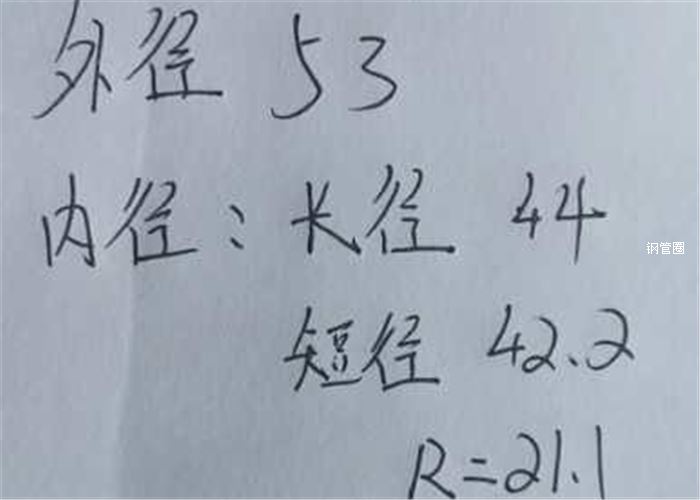 外径 53
内径：长径 44
钢管圈
短径 42.2
R=21.1